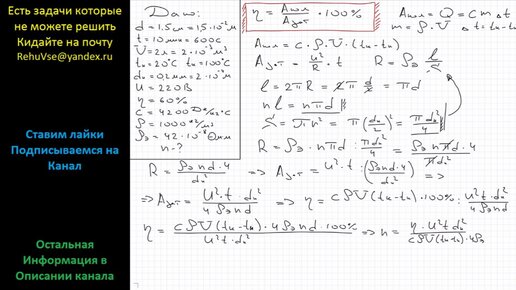 Есть задачи которые
не можете решить
Кидайте на почту
RehuVse@yandex.ru
Ставим лайки
Подписываемся на
Канал
Остальная
Информация в
Описании канала
Дано:
d = 1.5см = 1,5·10⁻²м
t = 10мин = 600с
V = 2л = 2·10⁻³м³
t₀ = 20°C tк = 100°C
d₀ = 0,2мм = 2·10⁻⁴м
U = 220В
η = 60%
c = 4200 Дж/кг°C
ρ = 1000 кг/м³
ρэ = 42·10⁻⁸ Ом·м
n - ?
η = Aпол / Aзат · 100%
Aпол = Q = c m Δt
m = ρ·V Δt = tк - t₀
Aпол = c·ρ·V·(tк - t₀)
Aзат = U²/R · t R = ρэ l/S
l = 2πR = 2π d/2 = πd
nl = nπd
S = πr² = π(d₀/2)² = πd₀²/4
R = ρэ · nπd : πd₀²/4 = ρэ nπd·4 / πd₀²
R = ρэ nd·4 / d₀² ⇒ Aзат = U²·t : (ρэ nd·4 / d₀²) ⇒
⇒ Aзат = U²·t·d₀² / 4ρэnd ⇒ η = cρV(tк - t₀)·100% : U²t·d₀² / 4ρэnd
η = cρV(tк - t₀)·4ρэnd·100% / U²t·d₀² ⇒ n = η·U²td₀² / cρV(tк - t₀)·4ρэ